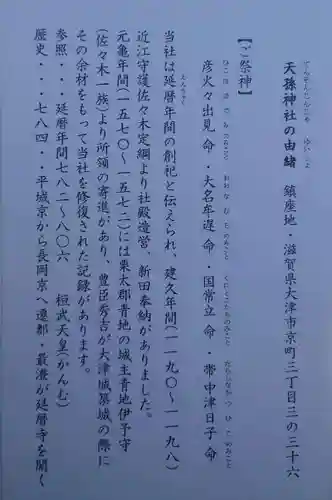 天孫神社の由緒　鎮座地・滋賀県大津市京町三丁目三の三十六
【ご祭神】
彦火々出見命・大名牟遅命・国常立命・帯中津日子命
当社は延暦年間の創祀と伝えられ、建久年間(一一九〇〜一一九八)
近江守護佐々木定綱より社殿造営、新田奉納がありました。
元亀年間(一五七〇〜一五七二)には栗太郡青地の城主青地伊予守
(佐々木一族)より所領の寄進があり、豊臣秀吉が大津城築城の際に
その余材をもって当社を修復された記録があります。
参照・・・延暦年間七八二〜八〇六　桓武天皇(かんむ)
歴史・・・七八四・平城京から長岡京へ遷都・最澄が延暦寺を開く